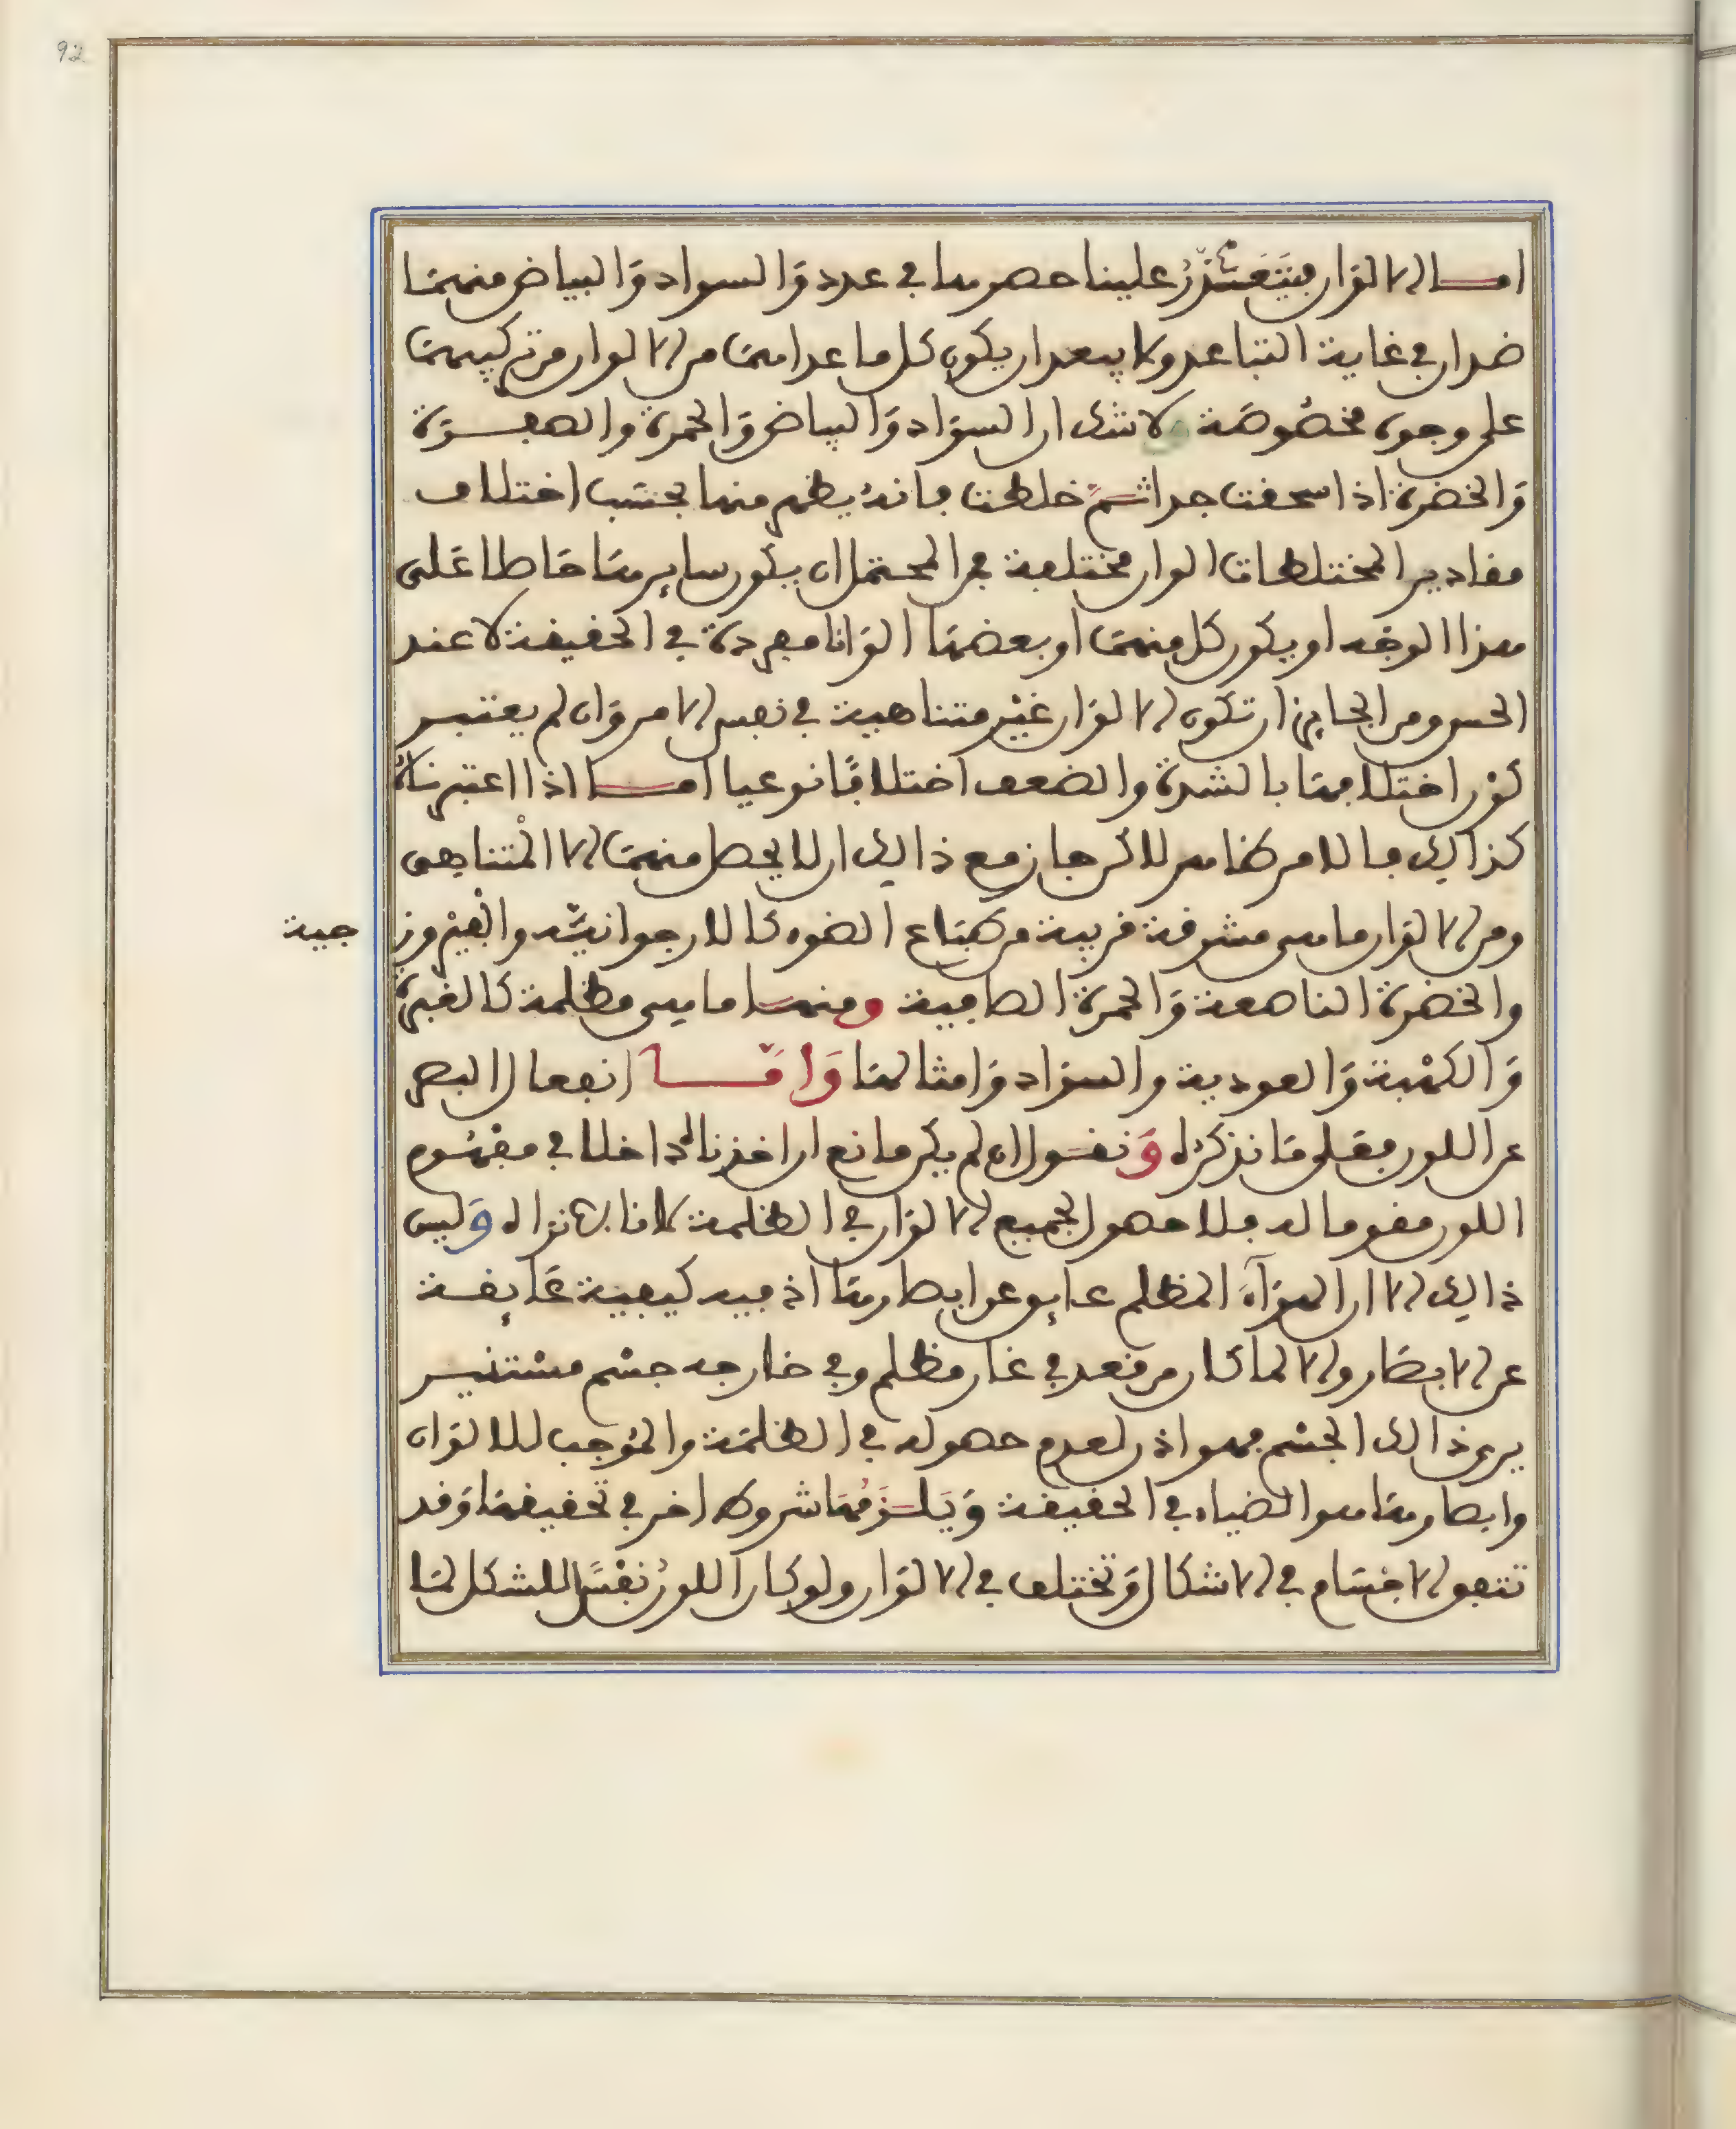 92
اما الالوان فيتعذر علينا حصرها في عدد والسواد والبياض منهما
ضدان في غاية التباعد ولا يبعد ان يكون كل ما عداهما من الالوان من تركيبهما
على وجوه مخصوصة لا شك ان السواد والبياض والحمرة والصفرة
والخضرة اذا سحقت جدا ثم خلطت فانه يظهر منها بحسب اختلاف
مقادير المختلطات الوان مختلفة فمن المحتمل ان يكون سايرها حاصلا على
هذا الوجه او يكون كل منها او بعضها الوانا مفردة في الحقيقة لا عند
الحس ومن الجايز ان تكون الالوان غير متناهية في نفس الامر وان لم يعتبر
كون اختلافها بالشدة والضعف اختلافا نوعيا اما اذا اعتبرناه
كذالك فالامر ظاهر لاكن جاز مع ذالك ان لا يحصل منها الا المتناهى
ومن الالوان ما هى مشرقة قريبة من طباع الضوء كالارجوانية والفيروز
جية
والخضرة الناصعة والحمرة الصافية ومنها ما هى مظلمة كالغبرة
والكهبة والعودية والسواد وامثالها واما انفعال البصر
عن اللون فعلى ما نذكره ونقول ان لم يكن مانع ان اخذناه داخلا في مفهوم
اللون مقوما له فلا حصول لجميع الالوان في الظلمة لانا لا نراه وليس
ذالك لان الهواء المظلم عايق عن ابصارها اذ فيه كيفية عايقة
عن الابصار والا لما كان من قعد في غار مظلم وفي خارجه جسم مستنير
يرى ذالك الجسم فهو اذن لعدم حصوله في الظلمة والموجب للالوان
وابصارها هو الضياء في الحقيقة ويلزمها شروط اخر في تحقيقها وقد
تتفق الاجسام في الاشكال وتختلف في الالوان ولو كان اللون نفس الشكل لما